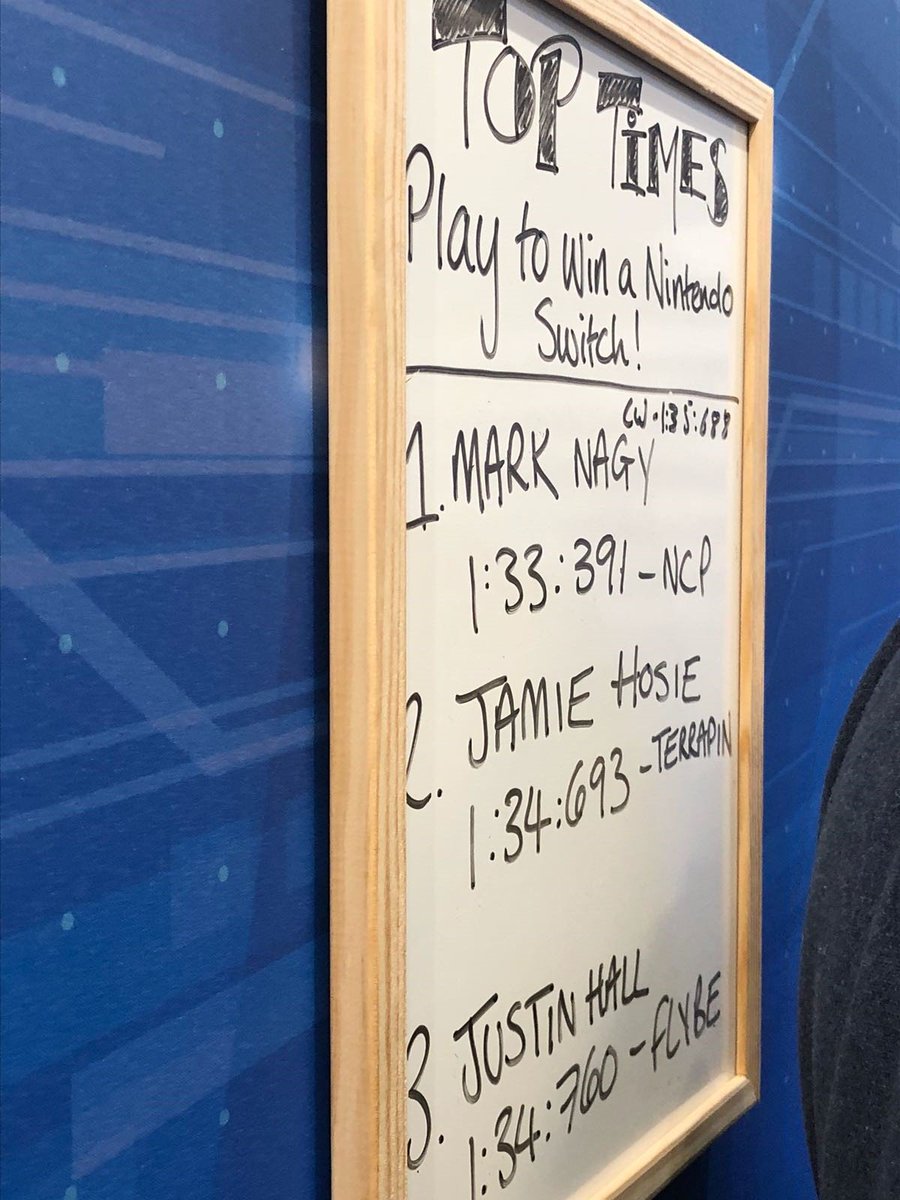 TOP TIMES
Play to Win a Nintendo
Switch!
CW-1:35:688
1. MARK NAGY
1:33:391-NCP
2. JAMIE HOSIE
1:34:693-TERRAPIN
3. JUSTIN HALL
1:34:760-FLYBE